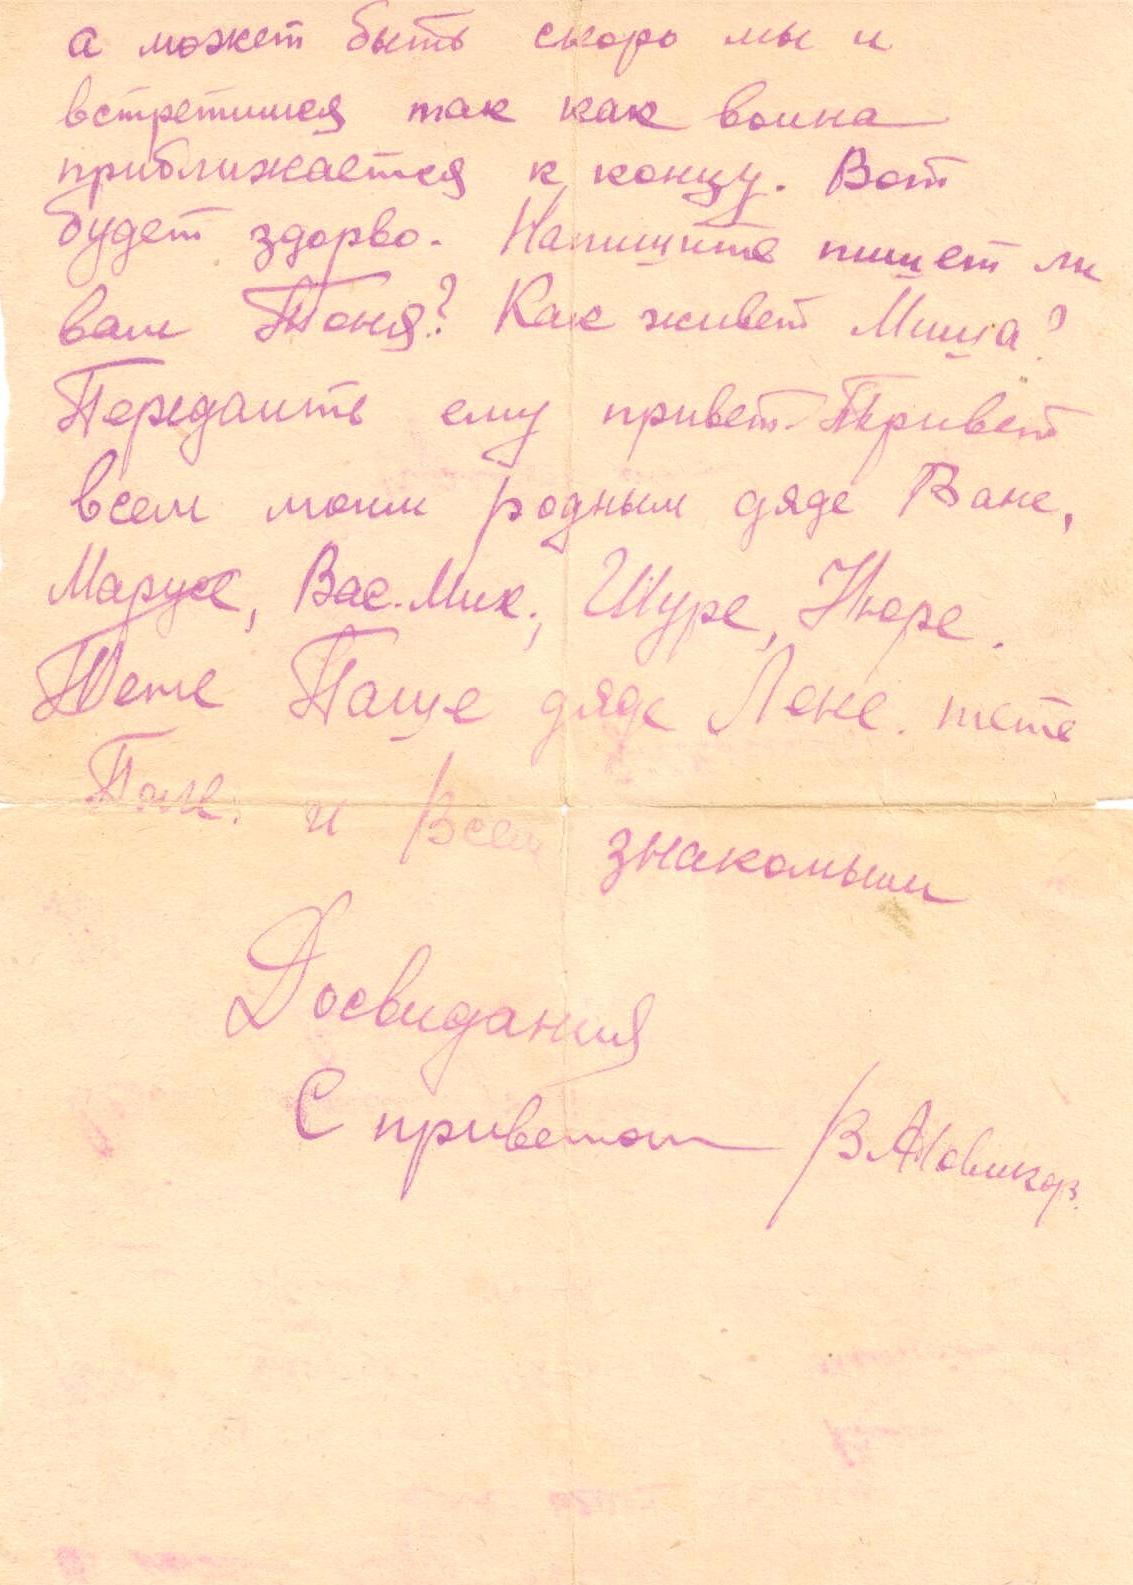 а может быть скоро мы и
встретимся так как воина
приближается к концу. Вот
будет здорво. Напишите пишет ли
вам Тоня? Как живет Миша?
Передаите ему привет. Привет
всем моим родным дяде Ване,
Марусе, Вас. Мих., Шуре, Нюре.
Тете Паше дяде Лене. тете
и Всем знакомым
Досвидания
С приветом В А Новиков.